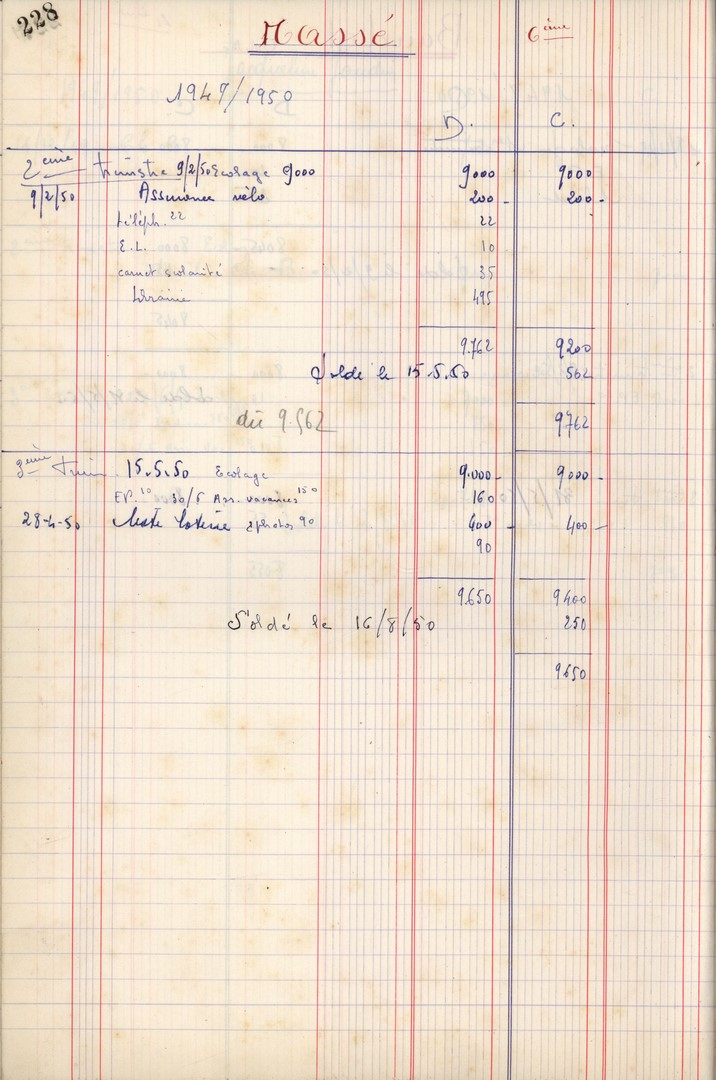 228
Massé 6ème
1947/1950
D. C.
2ème trimestre 9/2/50 Ecolage 9000 9000 9000
9/2/50 Assurance vélo 200 - 200 -
téléph. 22 22
E.L. 10
carnet scolarité 35
librairie 495
9.762 9200
Soldé le 15.5.50 562
dû 9.562 9762
3ème trim. 15.5.50 Ecolage 9.000 - 9000 -
EP. 10 30/5 Ass. vacances 150 160
28-4-50 loterie 2 photos 90 400 - 400 -
90
9.650 9400
Soldé le 16/8/50 250
9650